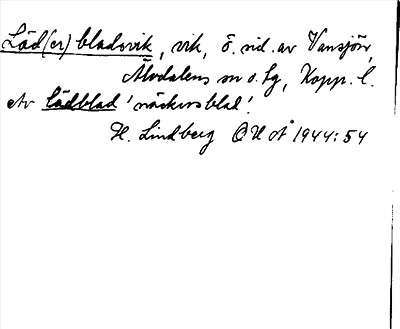 Läd(er)bladsvik, vik, ö. sid. av Vansjön,
Älvdalens sn o. hg, Kopp. l.
Av lädblad 'näckrosblad'.
H. Lindberg OUÅ 1944:54